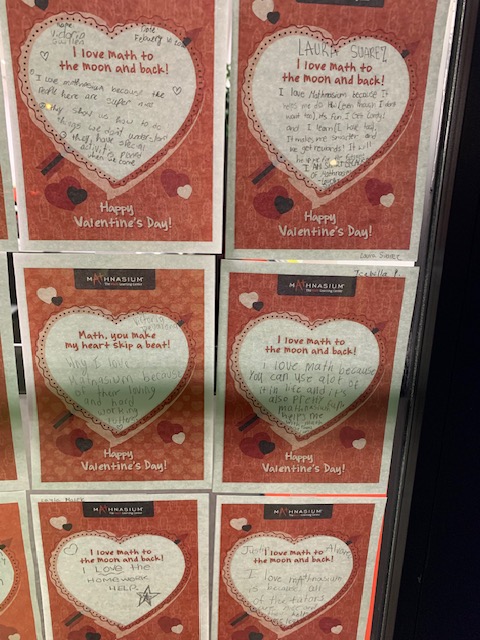 Name
Date
I love math to
the moon and back!
I love mathnasium because the
people here are super nice
they show us how to do
things we don't understand
they have special
activity
when we come
Happy
Valentine's Day!
LAURA SUAREZ
I love math to
the moon and back!
I love Mathnasium because It
lets me do HW (even though I don't
want to), Has fun, I Get Candy!
and I learn (I hate to),
It makes me smarter and
we get rewards! It will
I AM SMART BECAUSE
of Mathnasium
Happy
Valentine's Day!
Laura Suarez
MATHNASIUM
The Math Learning Center
Math, you make
my heart skip a beat!
Why I love
Mathnasium because
of their loving
and hard
working
tutors
Happy
Valentine's Day!
Isabella P.
MATHNASIUM
The Math Learning Center
I love math to
the moon and back!
I love math because
you can use alot of
it in life and it's
also pretty
mathnasium
helps me
Happy
Valentine's Day!
MATHNASIUM
The Math Learning Center
I love math to
the moon and back!
I LOVE THE
HOMEWORK
HELP.
MATHNASIUM
The Math Learning Center
I love math to
the moon and back!
I love mathnasium
is because all
of the tutors